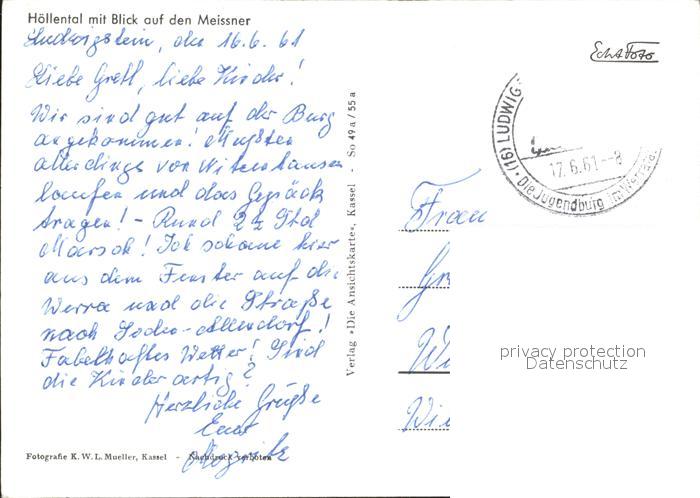 Höllental mit Blick auf den Meissner
Ludwigstein, den 16.6.61
Liebe Gretl, liebe Kinder!
Wir sind gut auf der Burg
angekommen! Mußten
allerdings von Witzenhausen
laufen und das Gepäck
tragen! - Rund 2½ Std
Marsch! Ich schaue hier
aus dem Fenster auf die
Werra und die Straße
nach Soden-Allendorf!
Fabelhaftes Wetter! Sind
die Kinder artig?
Herzliche Grüße
Fotografie K. W. L. Mueller, Kassel - Nachdruck verboten
Verlag »Die Ansichtskarte«, Kassel - So 49 a / 55 a
Echt Foto
(16) LUDWIG
17.6.61.--8
Die Jugendburg im Werra
Frau
Gr
Wi
Wi
privacy protection
Datenschutz